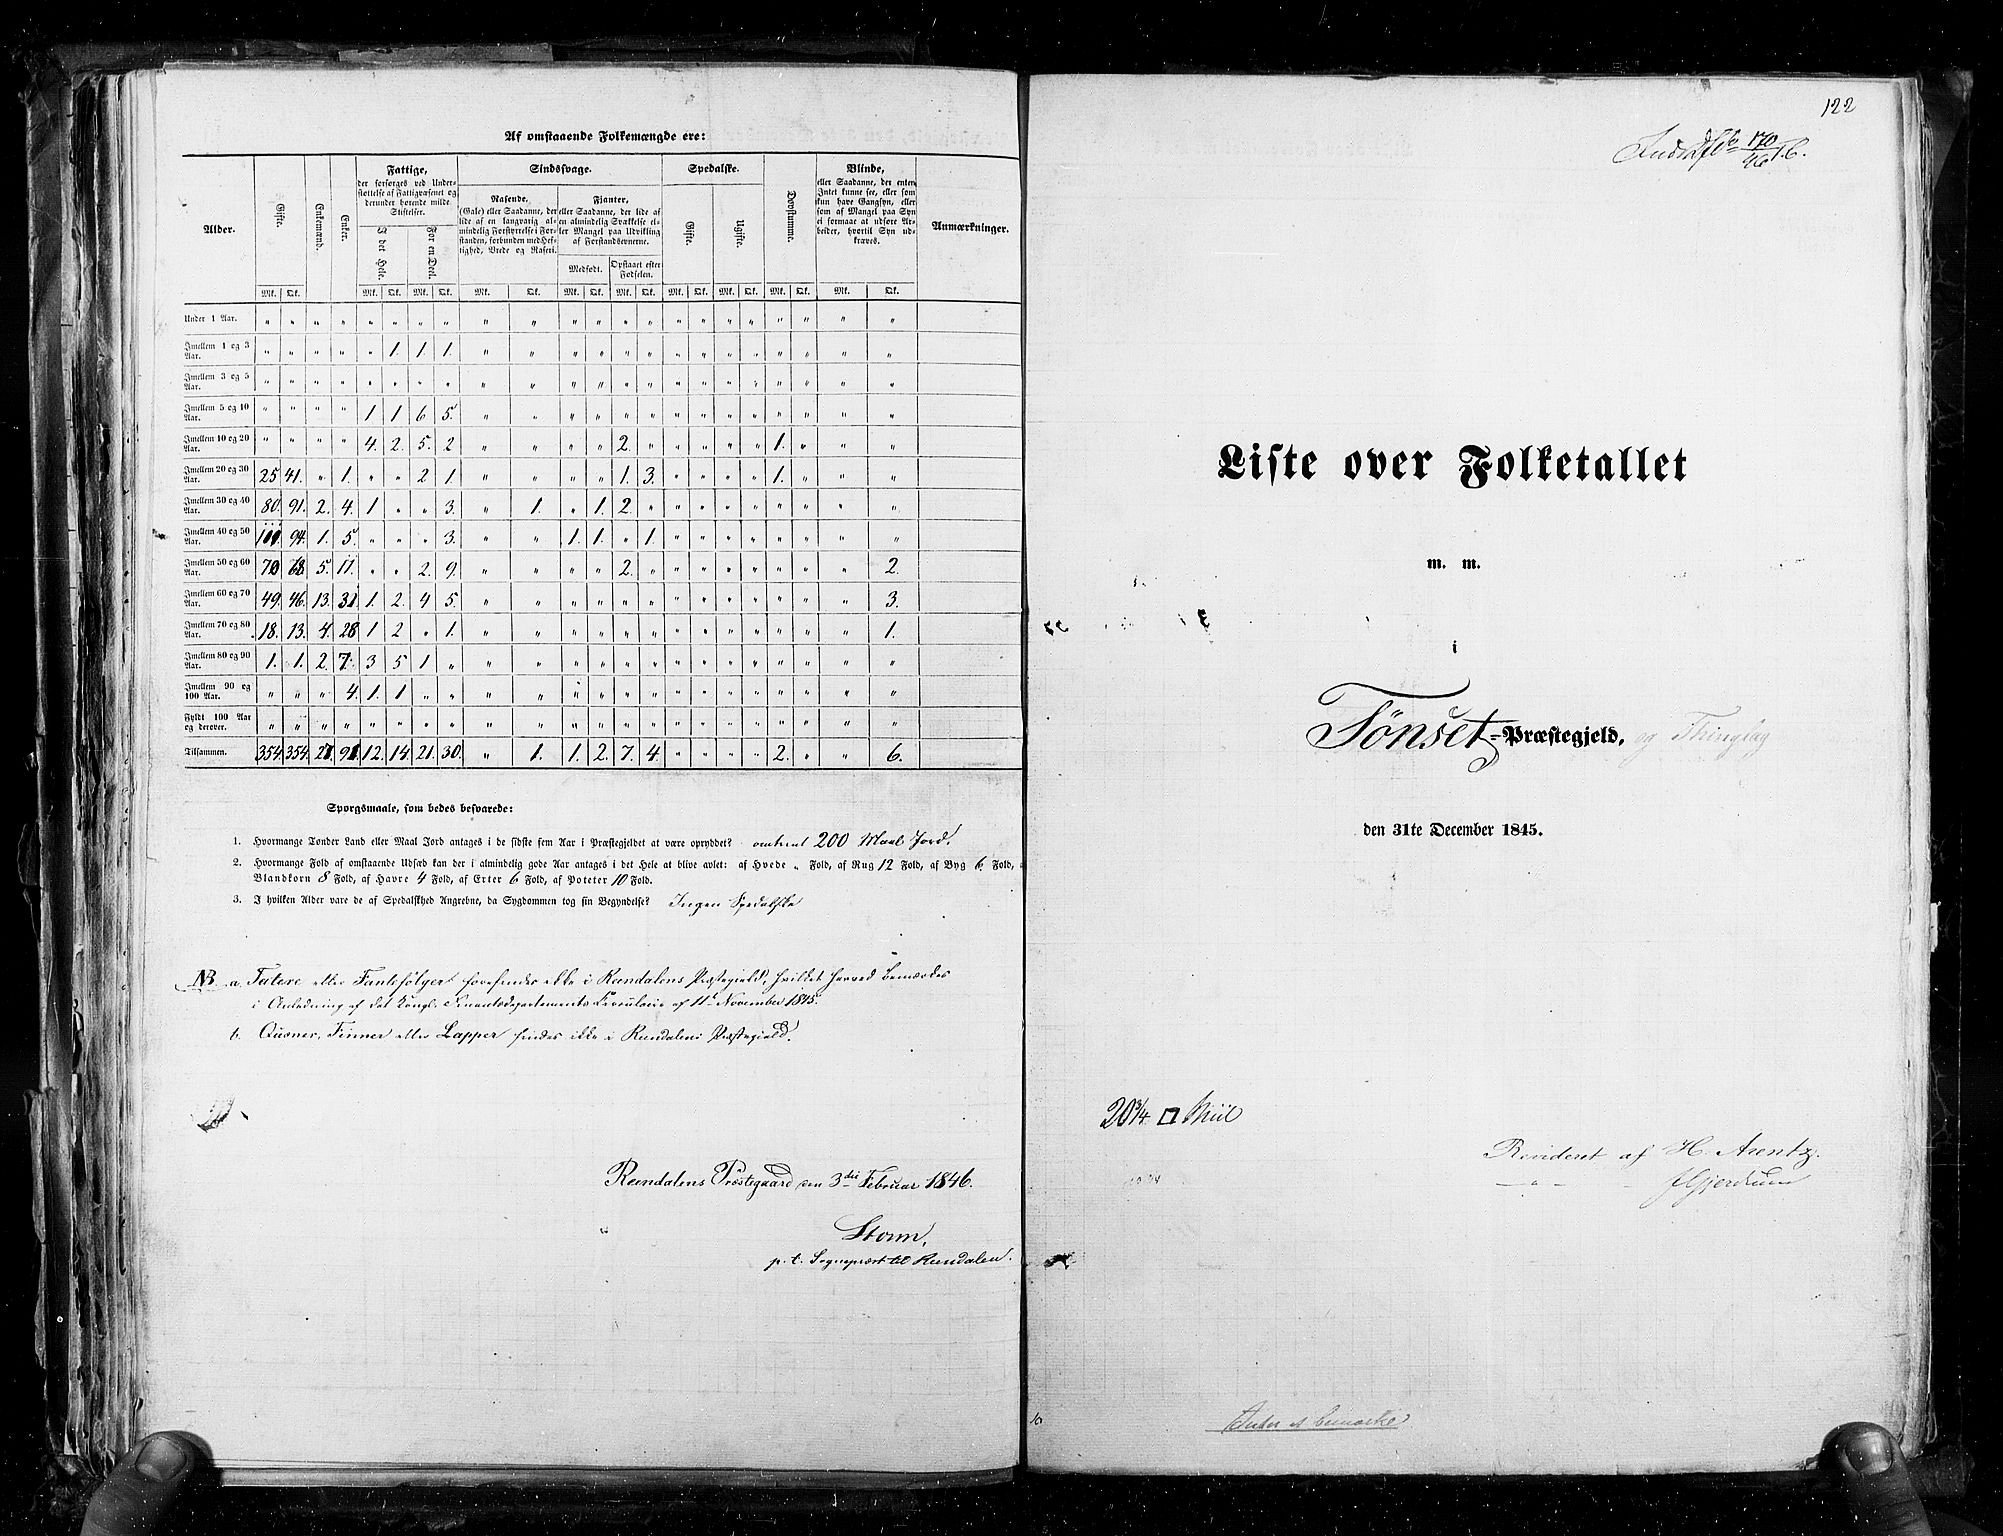 Af omstaaende Folkemængde ere:
Alder. Gifte. Enkemænd. Enker. Fattige, Sindssvage. Spedalske. Døvstumme. Blinde, Anmærkninger.
der forsørges ved Under-
støttelse af Fattigvæsenet og
derunder hørende milde
Stiftelser.
I det Hele. For en Deel.
Rasende,
(Gale) eller Saadanne, der
lide af en langvarig al-
mindelig Forstyrrelse i For-
standen, forbunden med Hef-
tighed, Vrede og Raseri.
Fianter,
eller Saadanne, der lide af
en almindelig Svækkelse el-
ler Mangel paa Udvikling
af Forstandsevnerne.
Medfødt. Opstaaet efter Fødselen.
Gifte. Ugifte.
eller Saadanne, der enten
Intet kunne see, eller som
kun have Gangsyn, eller
som af Mangel paa Syn
ei formaae at udføre Ar-
beider, hvortil Syn ud-
kræves.
Mk. Qk. Mk. Qk. Mk. Qk. Mk. Qk. Mk. Qk. Mk. Qk. Mk. Qk. Mk. Qk. Mk. Qk. Mk. Qk.
Under 1 Aar. " " " " " " " " " " " " " " " " " " " " " "
Imellem 1 og 3 Aar. " " " " " 1. 1. 1. " " " " " " " " " " " " " "
Imellem 3 og 5 Aar. " " " " " " " " " " " " " " " " " " " " " "
Imellem 5 og 10 Aar. " " " " 1 1 6 5. " " " " " " " " " " " " " "
Imellem 10 og 20 Aar. " " " " 4. 2. 5. 2 " " " " 2. " " " " " 1. " " "
Imellem 20 og 30 Aar. 25 41. " 1. " " 2 1 " " " " 1. 3. " " " " 1. " " "
Imellem 30 og 40 Aar. 80. 91. 2. 4. 1 " " 3. " 1. " 1. 2. " " " " " " " " "
Imellem 40 og 50 Aar. 94. 1. 5. " " " 3. " " 1. 1. " 1. " " " " " " " "
Imellem 50 og 60 Aar. 70 68 5. 11. " " 2. 9. " " " " 2. " " " " " " " " 2.
Imellem 60 og 70 Aar. 49. 46. 13. 31 1. 2. 4 5. " " " " " " " " " " " " " 3.
Imellem 70 og 80 Aar. 18. 13. 4. 28 1 2 " 1. " " " " " " " " " " " " " 1.
Imellem 80 og 90 Aar. 1. 1. 2. 7. 3 5 1 " " " " " " " " " " " " " " "
Imellem 90 og 100 Aar. " " " 4. 1. 1 " " " " " " " " " " " " " " " "
Fyldt 100 Aar og derover. " " " " " " " " " " " " " " " " " " " " " "
Tilsammen. 354. 354. 12. 14. 21. 30. " 1. 1. 2. 7. 4. " " " " 2. " " 6.
Spørgsmaale, som bedes besvarede:
1. Hvormange Tønder Land eller Maal Jord antages i de sidste fem Aar i Præstegjeldet at være opryddet? omtrent 200 Maal Jord.
2. Hvormange Fold af omstaaende Udsæd kan der i almindelig gode Aar antages i det Hele at blive avlet: af Hvede " Fold, af Rug 12 Fold, af Byg 6 Fold,
Blandkorn 8 Fold, af Havre 4 Fold, af Erter 6 Fold, af Poteter 10 Fold.
3. I hvilken Alder vare de af Spedalskhed Angrebne, da Sygdommen tog sin Begyndelse? Ingen Spedalske
NB a. Tatere eller Fantefølger forefindes ikke i Rendalens Præstegield, hvilket herved bemærkes
i Anledning af det Kongl. Finantsdepartements Circulaire af 11te November 1845.
b. Qvæner, Finner eller Lapper findes ikke i Rendalens Præstegield.
Rendalens Præstegaard den 3die Februar 1846.
Storm,
p. t. Sognepræst til Rendalen.
122
170
46
Liste over Folketallet
m. m.
i
Tønset-Præstegjeld, og Thinglag
den 31te December 1845.
20 3/4 □ Miil
Revideret af H. Arentz.
— " — JGjerdrum